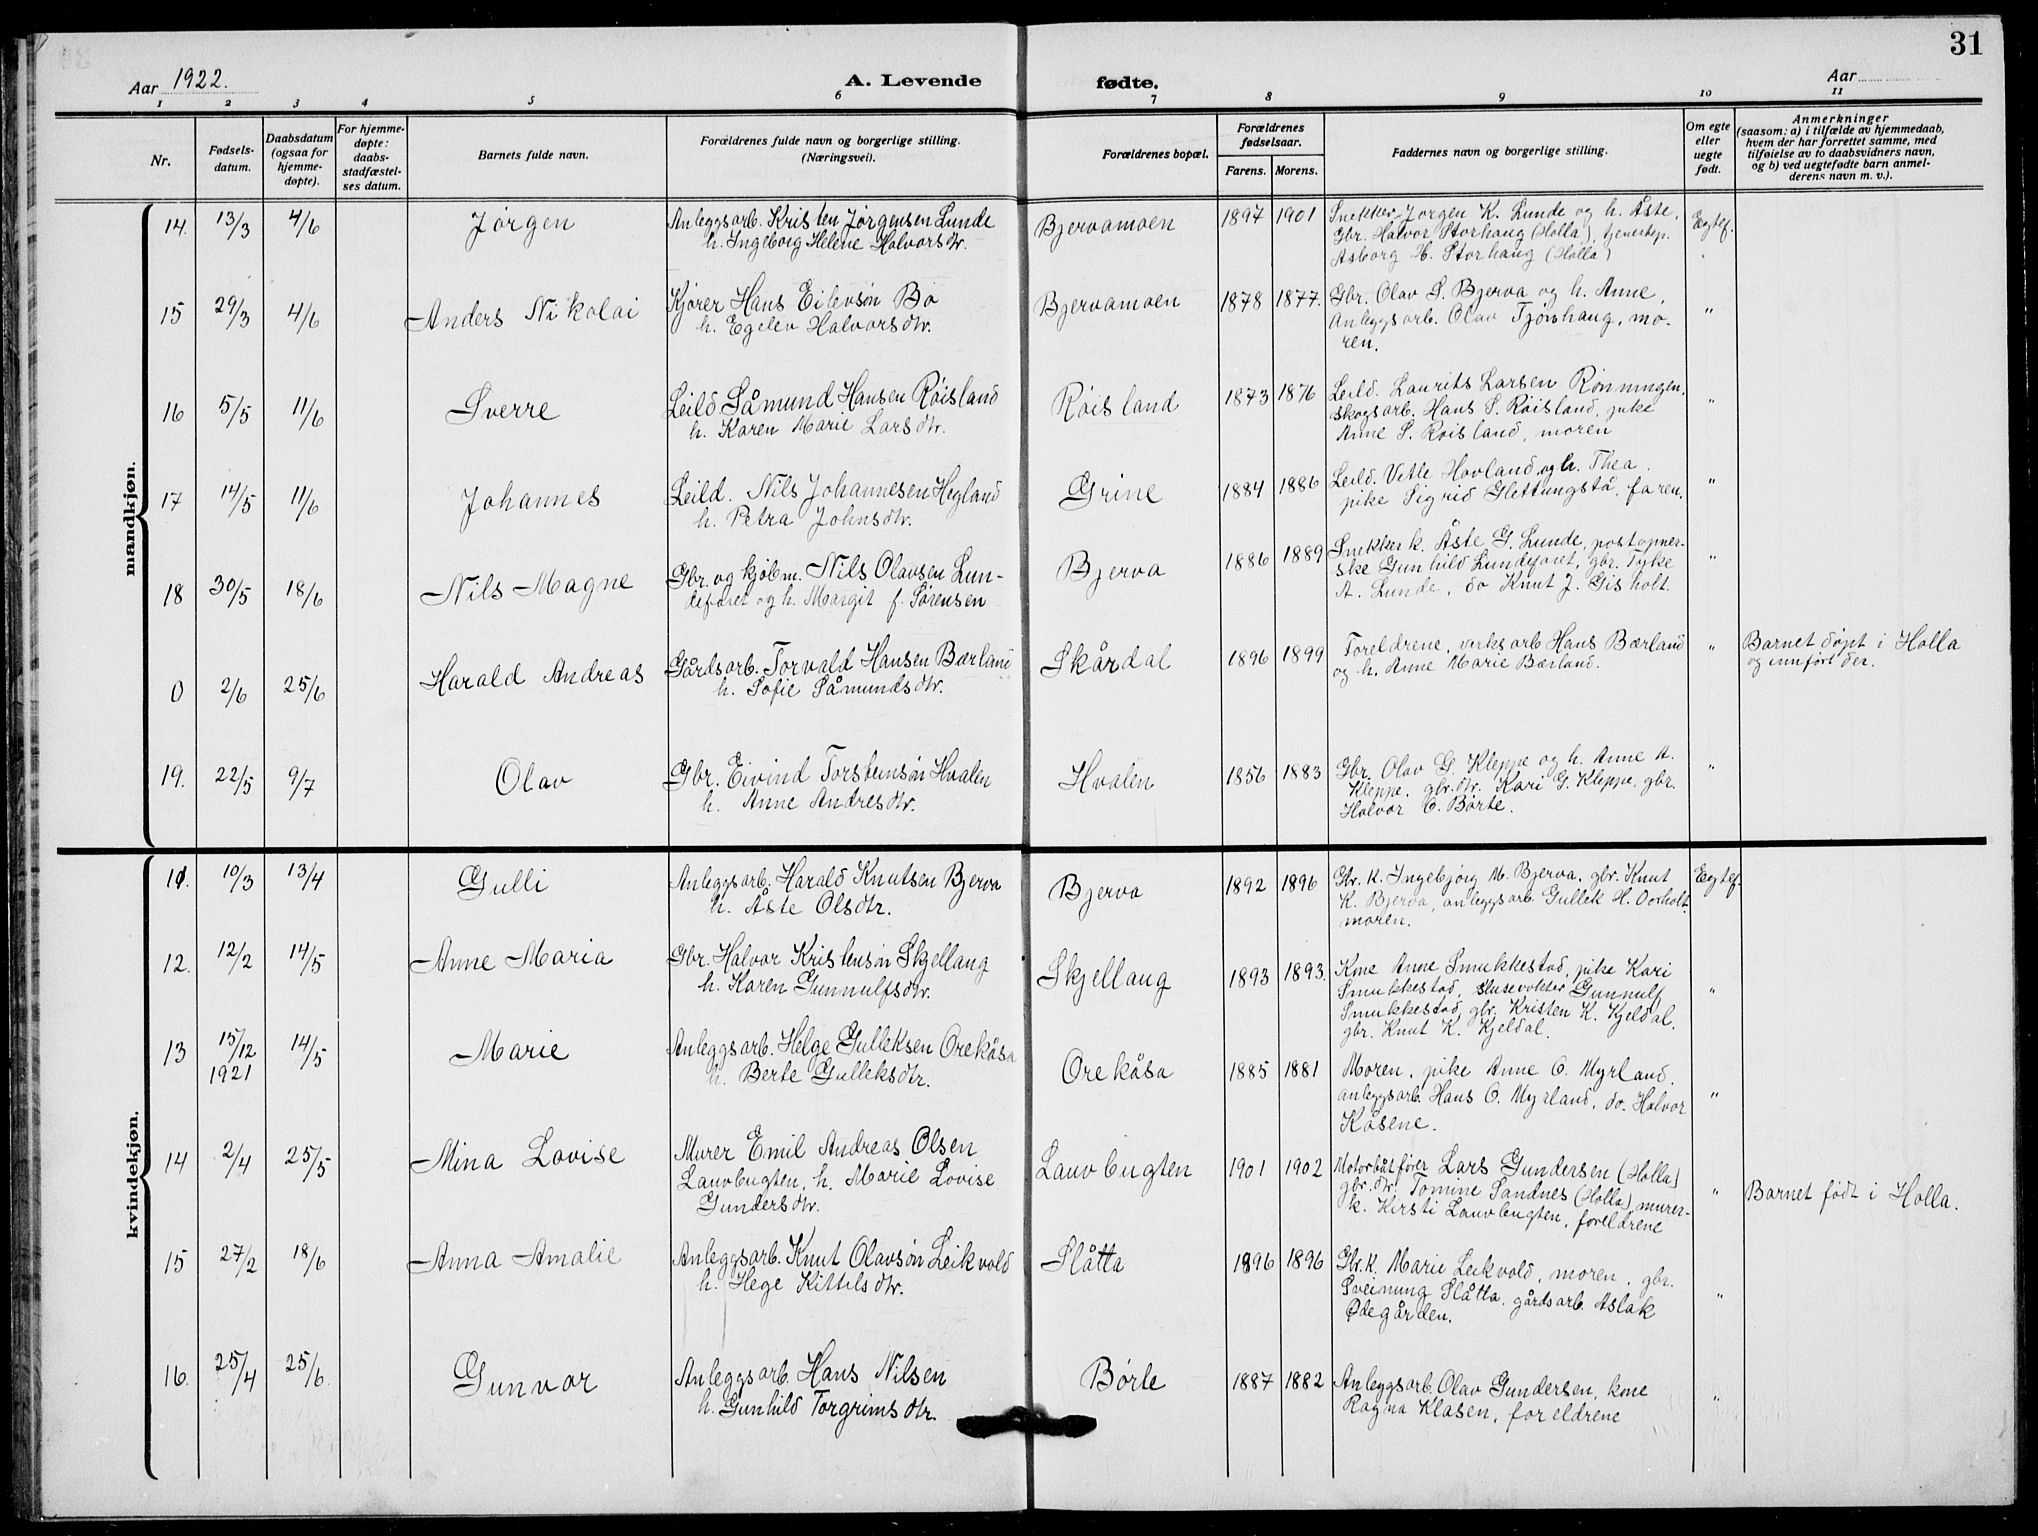 31
Aar 1922.
A. Levende fødte.
Aar
1 2 3 4 5 6 7 8 9 10 11
Nr.
Fødsels-
datum.
Daabsdatum
(ogsaa for
hjemme-
døpte).
For hjemme-
døpte:
daabs-
stadfæstel-
ses datum.
Barnets fulde navn.
Forældrenes fulde navn og borgerlige stilling.
(Næringsvei).
Forældrenes bopæl.
Forældrenes
fødselsaar.
Farens. Morens.
Faddernes navn og borgerlige stilling.
Om egte
eller
uegte
født.
Anmerkninger
(saasom: a) i tilfælde av hjemmedaab,
hvem der har forrettet samme, med
tilføielse av to daabsvidners navn,
og b) ved uegtefødte barn anmel-
derens navn m. v.).
mandkjøn.
14. 13/3 4/6 Jørgen
Anleggsarb. Kristen Jørgensen Lunde
h. Ingeborg Helene Halvorsdtr.
Bjervamoen 1897 1901
Snekker Jørgen K. Lunde og h. Åste,
Gbr. Halvor Storhaug (Holla), tjenestep.
Asborg H. Storhaug (Holla)
Egtef.
15 29/3 4/6 Anders Nikolai
Kjører Hans Eilevsøn Bø
h. Egelev Halvorsdtr.
Bjervamoen 1878 1877.
Gbr. Olav S. Bjerva og h. Anne,
Anleggsarb. Olav Tjønhaug, mo-
ren.
"
16 5/5 11/6 Sverre
Leild Såmund Hansen Røisland
h. Karen Marie Larsdtr.
Røisland 1873 1876
Leild. Laurits Larsen Rønningen,
skogsarb. Hans S. Røisland, pike
Anne S. Røisland, moren
"
17 14/5 11/6 Johannes
Leild. Nils Johannesen Hegland
h. Petra Johnsdtr.
Grine 1884 1886
Leild. Vetle Hovland og h. Thea.
pike Sigrid Slettungstå, faren.
"
18 30/5 18/6 Nils Magne
Gbr. og kjøbm. Nils Olavsen Lun-
defaret og h. Margit f. Sørensen
Bjerva 1886 1889
Snekker k. Åste G. Lunde, postopner-
ske Gunhild Lundefaret, gbr. Tyke
A. Lunde, do Knut J. Gisholt.
"
0 2/6 25/6 Harald Andreas
Gårdsarb. Torvald Hansen Bærland
h. Sofie Såmundsdtr.
Skårdal 1896 1899
Foreldrene, verksarb Hans Bærland
og h. Anne Marie Bærland.
"
Barnet døpt i Holla
og innført der.
19. 22/5 9/7 Olav
Gbr. Eivind Torsteinsøn Hvalen
h. Anne Andresdtr.
Hvalen 1856 1883
Gbr. Olav G. Kleppe og h. Anne A.
Kleppe. gbr.dtr. Kari G. Kleppe, gbr.
Halvor C. Børte.
"
kvindekjøn.
11. 10/3 13/4 Gulli
Anleggsarb. Harald Knutsen Bjerva
h. Åste Olsdtr.
Bjerva 1892 1896
Gbr. k. Ingebjørg M. Bjerva, gbr. Knut
K. Bjerva, anleggsarb Gullek H. Oorholt,
moren.
Egtef.
12. 12/2 14/5 Anne Maria
Gbr. Halvor Kristensøn Skjellaug
h. Karen Gunnulfsdtr.
Skjellaug 1893 1893.
Kone Anne Smukkestad, pike Kari
Smukkestad, slusevokter Gunnulf
Smukkestad, gbr. Kristen K. Kjeldal.
gbr. Knut K. Kjeldal.
"
13 15/12 1921 14/5 Marie
Anleggsarb. Helge Gulleksen Orekåsa
h. Berte Gulleksdtr.
Orekåsa 1885 1881
Moren, pike Anne O. Myrland.
anleggsarb. Hans O. Myrland, do. Halvor
Kåsene.
"
14 2/4 25/5 Mina Lovise
Murer Emil Andreas Olsen
Lauvbugten, h. Marie Lovise
Gundersdtr.
Lauvbugten 1901 1902
Motorbåtfører Lars Gundersen (Holla)
gbr. dtr. Tomine Sandnes (Holla), murer-
k. Kirsti Lauvbugten, foreldrene
"
Barnet født i Holla.
15 27/2 18/6 Anna Amalie
Anleggsarb. Knut Olavsøn Leikvold
h. Hege Kittilsdtr.
Slåtta 1896 1896
Gbr. k. Marie Leikvold, moren, gbr.
Sveinung Slåtta. gårdsarb. Aslak
Ødegården.
"
16. 25/4 25/6 Gunvor
Anleggsarb. Hans Nilsen
h. Gunhild Torgrimsdtr.
Børle 1887 1882
Anleggsarb. Olav Gundersen, kone
Ragna Klasen, foreldrene
"